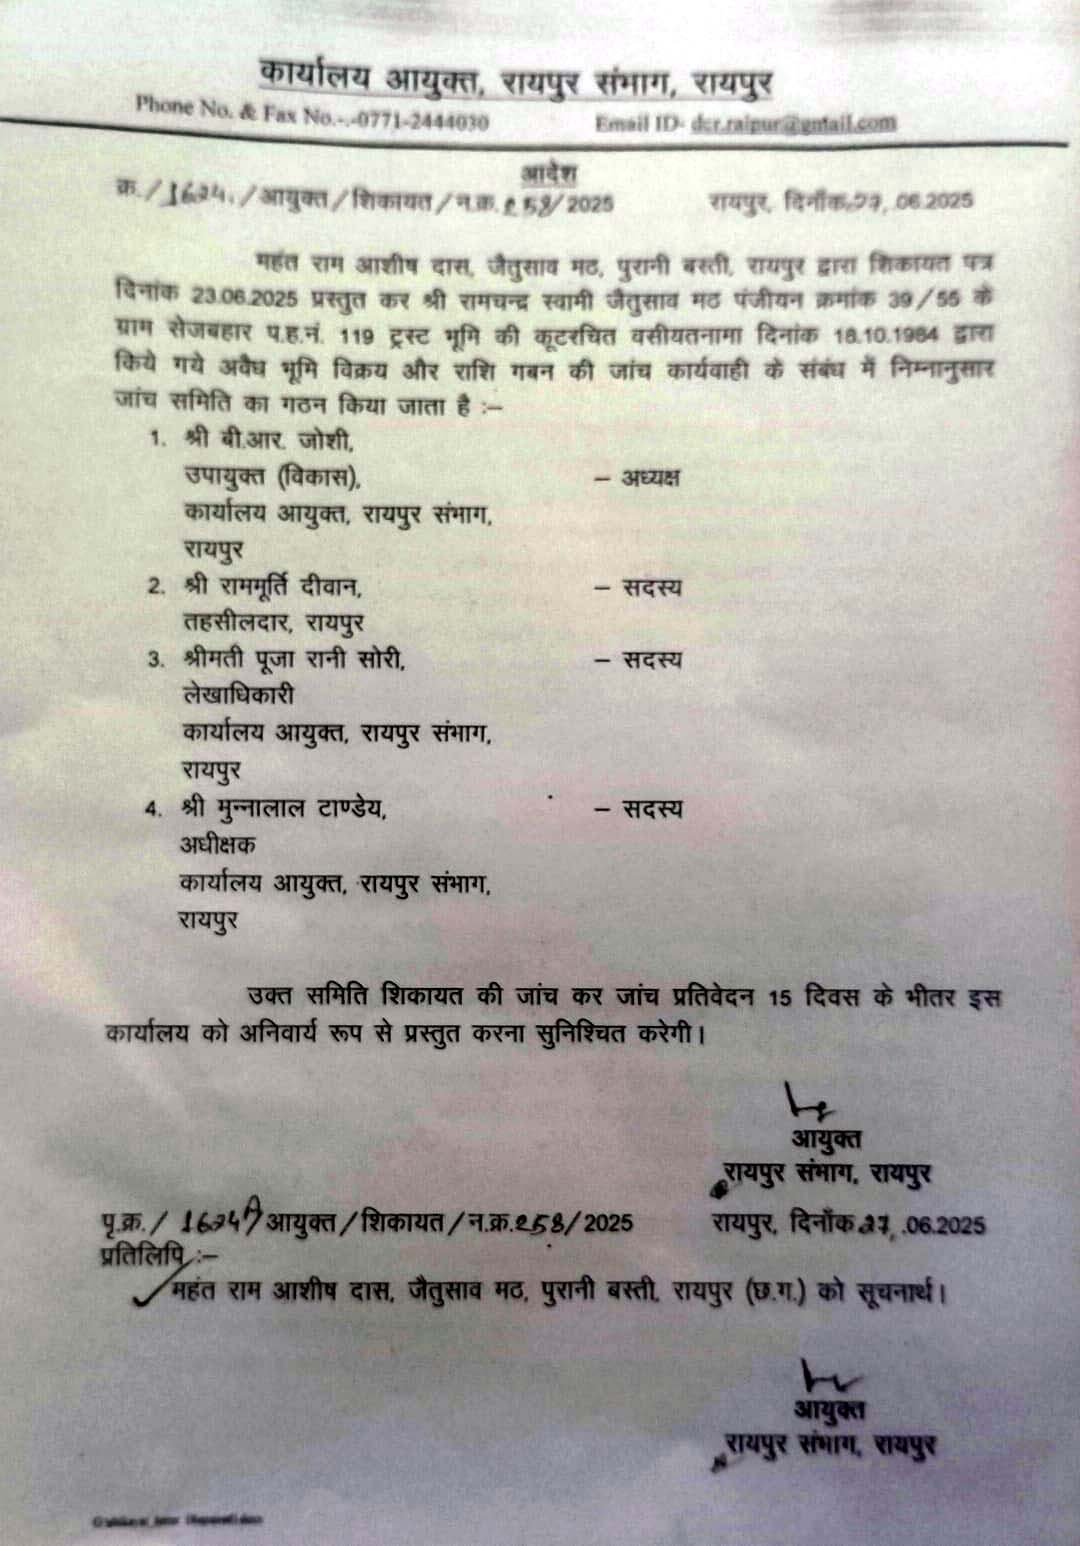 कार्यालय आयुक्त, रायपुर संभाग, रायपुर
Phone No. & Fax No.-.-0771-2444030 Email ID- dcr.raipur@gmail.com
आदेश
क्र./1624./आयुक्त/शिकायत/न.क्र.258/2025 रायपुर, दिनाँक 27, .06.2025
महंत राम आशीष दास, जैतुसाव मठ, पुरानी बस्ती, रायपुर द्वारा शिकायत पत्र
दिनांक 23.06.2025 प्रस्तुत कर श्री रामचन्द्र स्वामी जैतुसाव मठ पंजीयन क्रमांक 39/55 के
ग्राम सेजबहार प.ह.नं. 119 ट्रस्ट भूमि की कूटरचित वसीयतनामा दिनांक 18.10.1984 द्वारा
किये गये अवैध भूमि विक्रय और राशि गबन की जांच कार्यवाही के संबंध में निम्नानुसार
जांच समिति का गठन किया जाता है :–
1. श्री बी.आर. जोशी,
उपायुक्त (विकास), – अध्यक्ष
कार्यालय आयुक्त, रायपुर संभाग,
रायपुर
2. श्री राममूर्ति दीवान, – सदस्य
तहसीलदार, रायपुर
3. श्रीमती पूजा रानी सोरी, – सदस्य
लेखाधिकारी
कार्यालय आयुक्त, रायपुर संभाग,
रायपुर
4. श्री मुन्नालाल टाण्डेय, – सदस्य
अधीक्षक
कार्यालय आयुक्त, रायपुर संभाग,
रायपुर
उक्त समिति शिकायत की जांच कर जांच प्रतिवेदन 15 दिवस के भीतर इस
कार्यालय को अनिवार्य रूप से प्रस्तुत करना सुनिश्चित करेगी।
आयुक्त
रायपुर संभाग, रायपुर
पृ.क्र./ 1624 /आयुक्त/शिकायत/न.क्र.258/2025 रायपुर, दिनाँक 27, .06.2025
प्रतिलिपि :–
महंत राम आशीष दास, जैतुसाव मठ, पुरानी बस्ती, रायपुर (छ.ग.) को सूचनार्थ।
आयुक्त
रायपुर संभाग, रायपुर